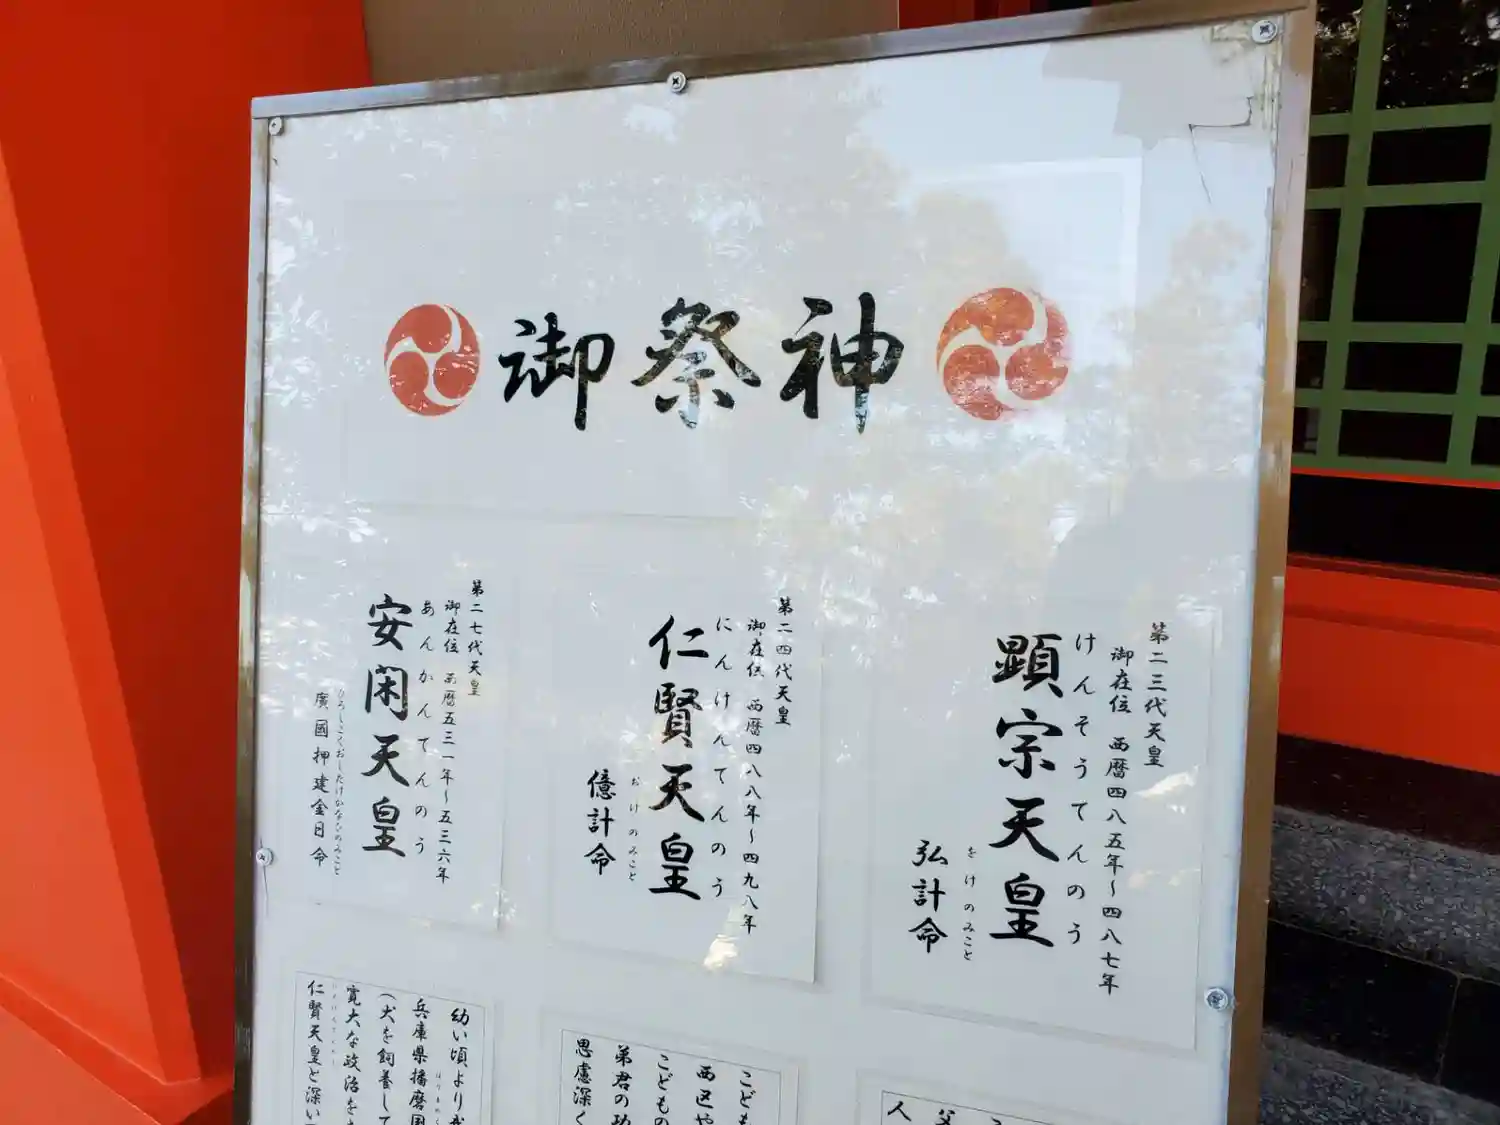 御祭神
第二三代天皇
御在位 西暦四八五年～四八七年
けんそうてんのう
顕宗天皇
をけのみこと
弘計命
第二四代天皇
御在位 西暦四八八年～四九八年
にんけんてんのう
仁賢天皇
おけのみこと
億計命
第二七代天皇
御在位 西暦五三一年～五三六年
あんかんてんのう
安閑天皇
ひろしこくおしたけかなひのみこと
廣國押建金日命
父
人
こども
西区や
こどもの
弟君の功
思慮深く
幼い頃より
兵庫県播磨国
（犬を飼養して
寛大な政治を
仁賢天皇と深い